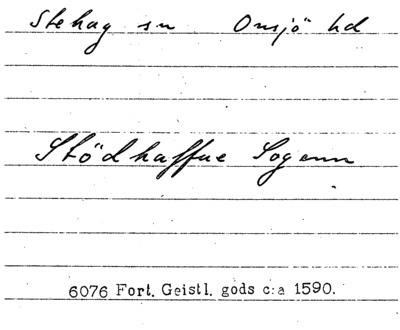 Stehag sn Onsjö hd
Stödhaffue Sogenn
6076 Fort. Geistl. gods c:a 1590.